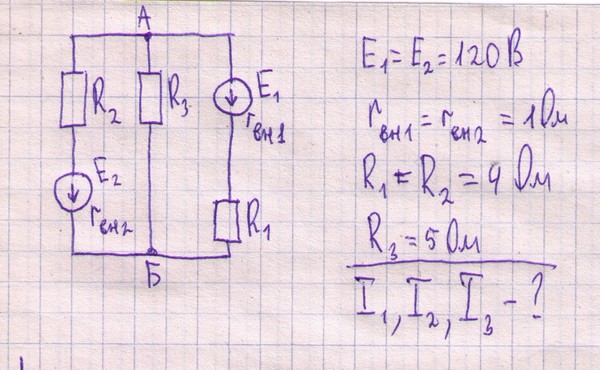 А
R₂
R₃
E₁
rвн1
E₂
rвн2
R₁
Б
E₁ = E₂ = 120 В
rвн1 = rвн2 = 1 Ом
R₁ = R₂ = 4 Ом
R₃ = 5 Ом
I₁, I₂, I₃ - ?